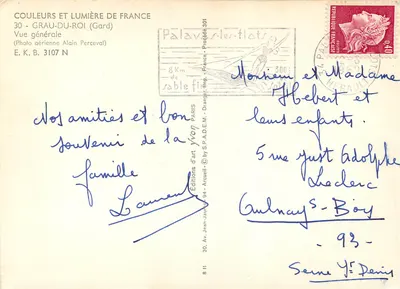 COULEURS ET LUMIÈRE DE FRANCE
30 - GRAU-DU-ROI (Gard)
Vue générale
(Photo aérienne Alain Perceval)
E. K. B. 3107 N
Nos amitiés et bon
souvenir de la
famille
Laurent
Éditions d'art yvon PARIS
Palavas-les-flots
8 Km de
sable fin
RÉPUBLIQUE FRANÇAISE
POSTES
0,40
Monsieur et Madame
Hebert et
leurs enfants.
5 rue just Adolphe
Leclerc
Aulnay s- Boy
- 93 -
Seine St Denis